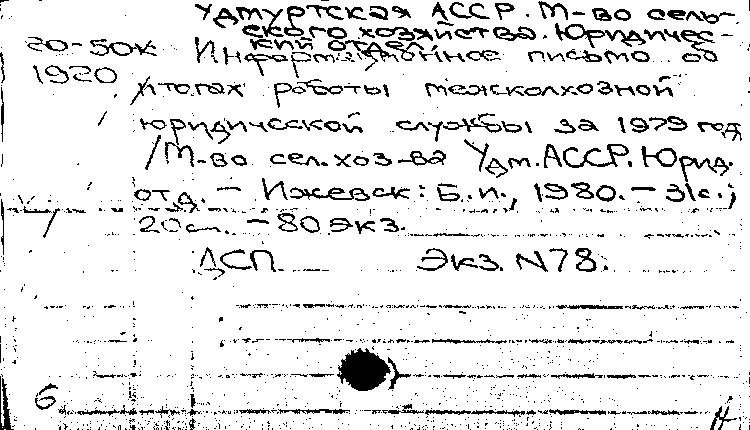 Удмуртская АССР. М-во сель-
ского хозяйства. Юридичес-
кий отдел.
20-50к Информационное письмо об
1920 итогах работы межколхозной
юридической службы за 1979 год
/М-во сел. хоз-ва Удм. АССР. Юрид.
отд. – Ижевск: Б.и., 1980. – 31с.;
20см. – 80 экз.
ДСП Экз. N78.
6